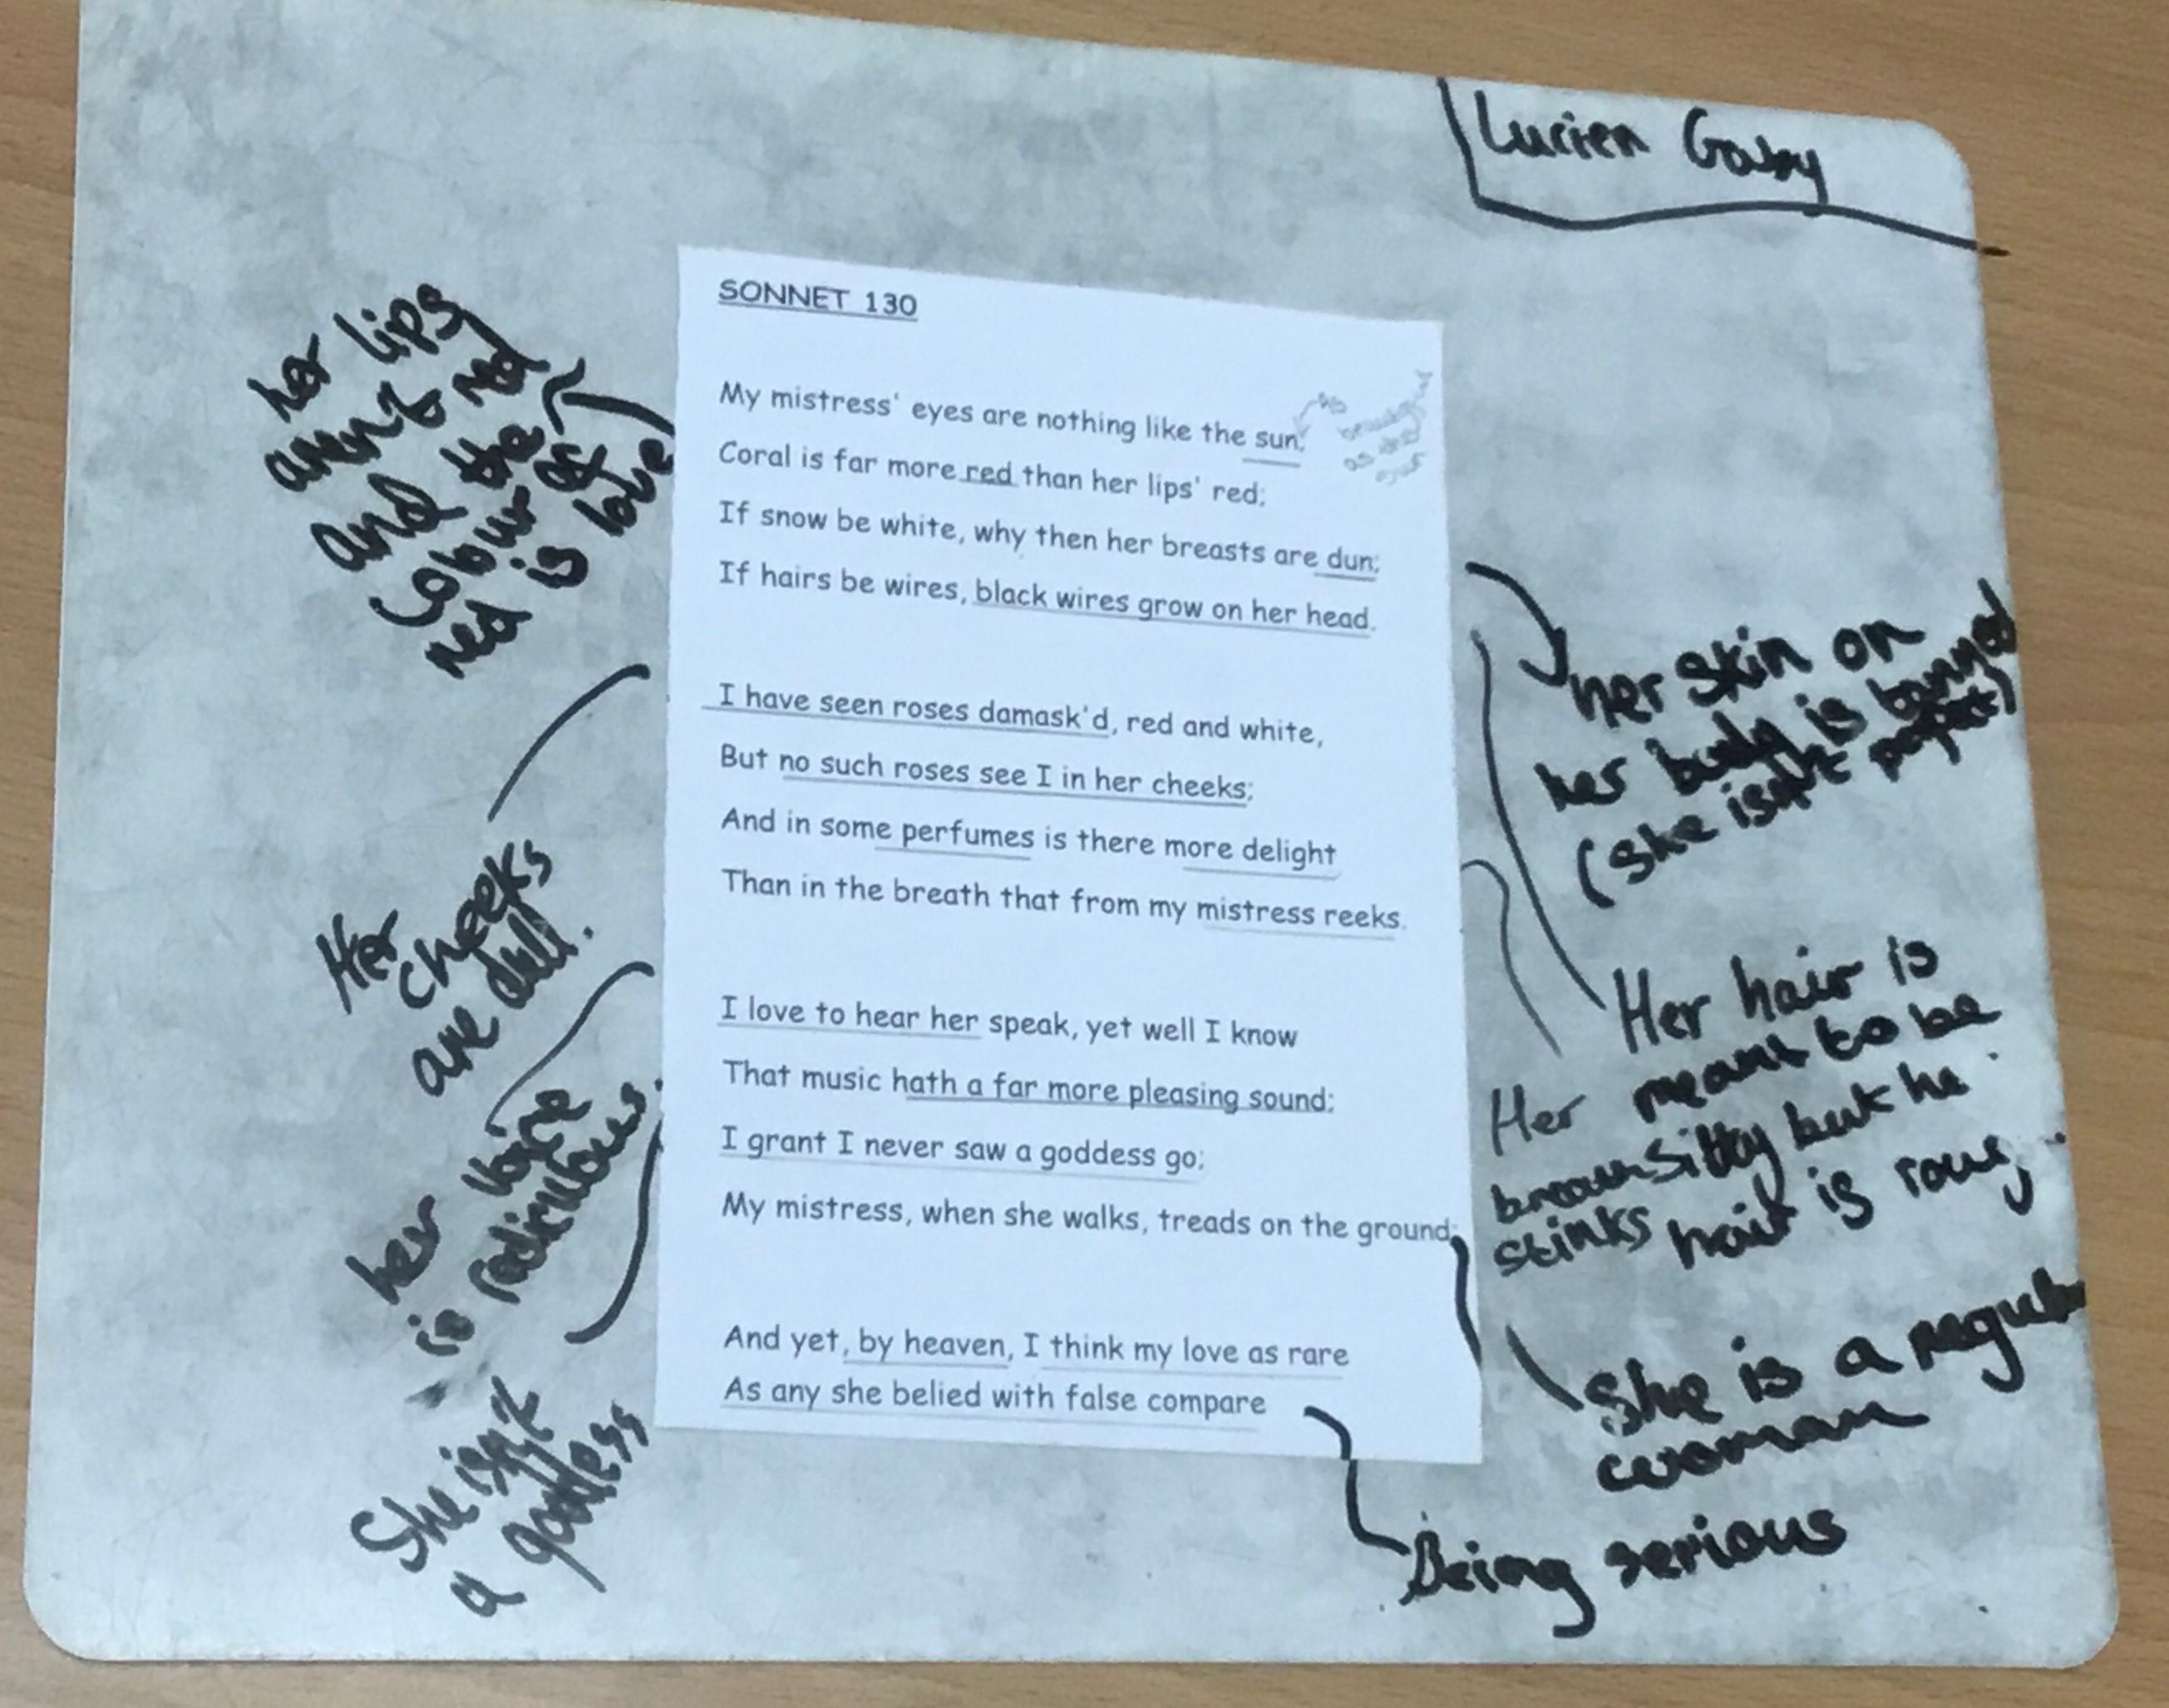 Lucien Gaby
SONNET 130
My mistress' eyes are nothing like the sun;
Coral is far more red than her lips' red;
If snow be white, why then her breasts are dun;
If hairs be wires, black wires grow on her head.
I have seen roses damask'd, red and white,
But no such roses see I in her cheeks;
And in some perfumes is there more delight
Than in the breath that from my mistress reeks.
I love to hear her speak, yet well I know
That music hath a far more pleasing sound;
I grant I never saw a goddess go;
My mistress, when she walks, treads on the ground;
And yet, by heaven, I think my love as rare
As any she belied with false compare
as
beautiful
as the
sun
her lips
aren't red
and the
colour of
red is love
Her
cheeks
are dull.
her voice
is
She isn't
a goddess
her skin on
her body is
(she isn't perfect)
Her hair is
meant to be
silky but he
hair is
Her
stinks
She is a regular
woman
Being serious